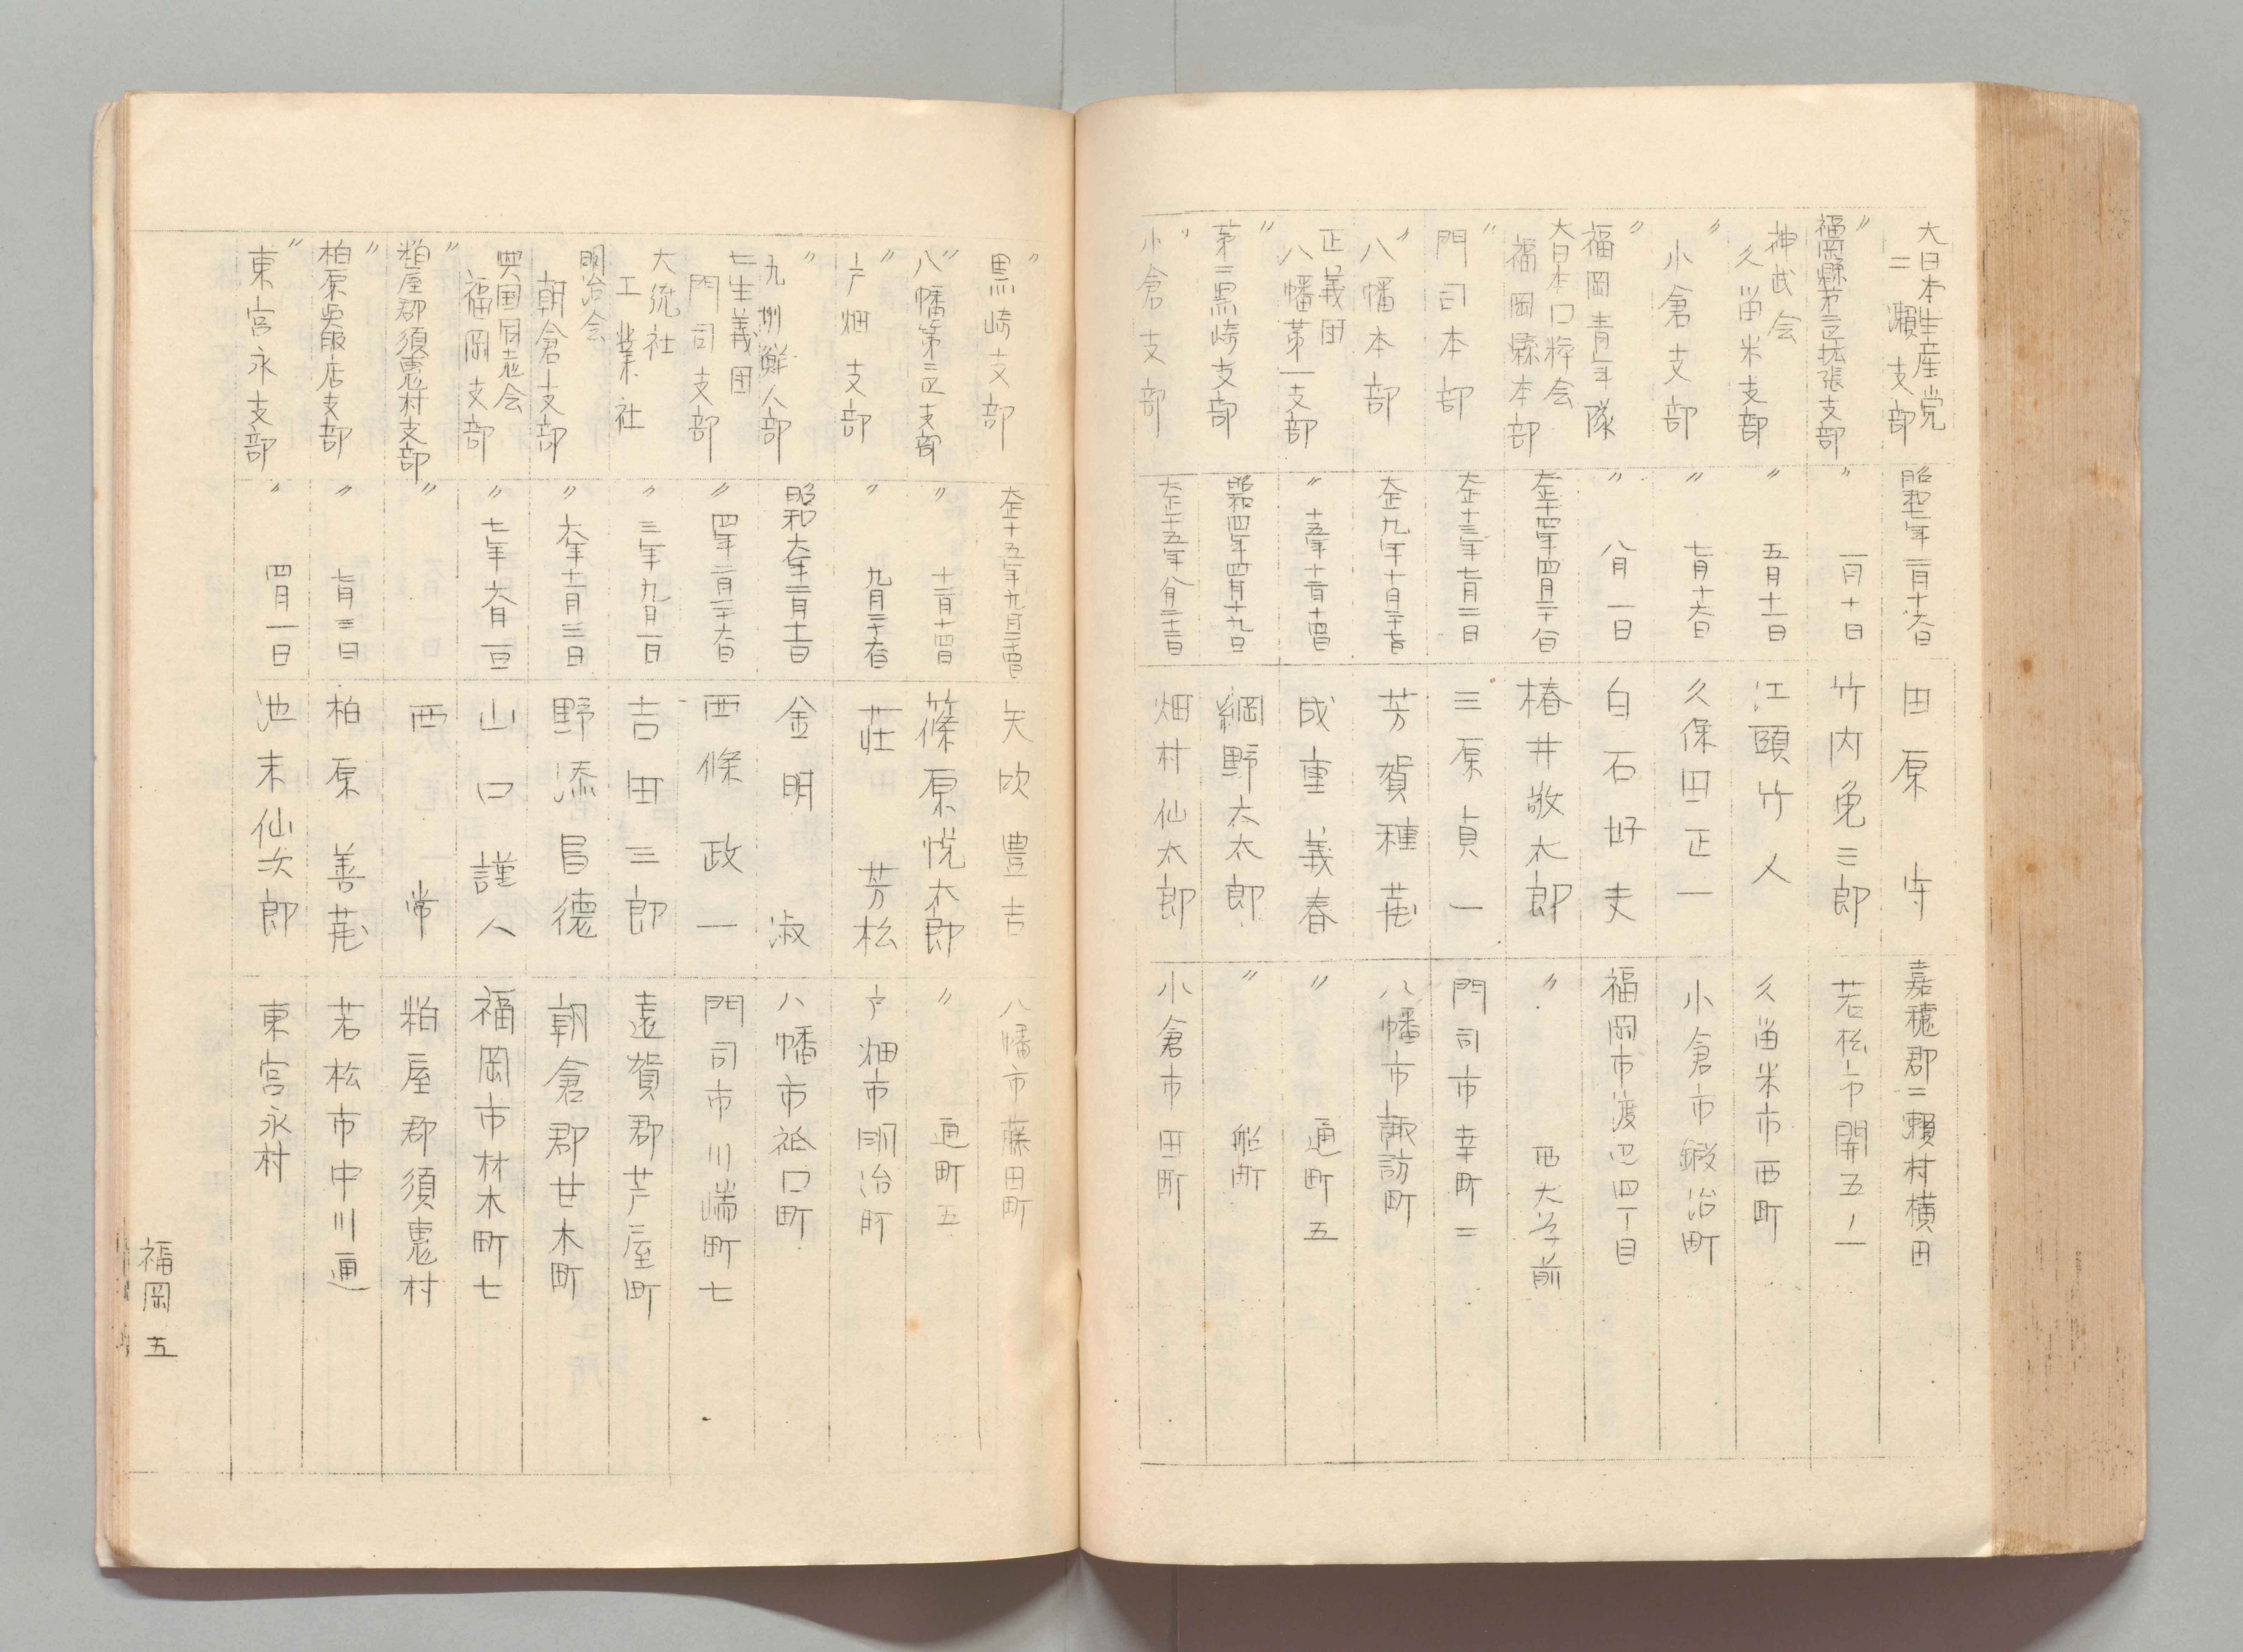 大日本生産党
二瀬支部 昭和七年一月十六日 田原 守 嘉穂郡二瀬村横田
〃
福岡縣第三区拡張支部 〃 一月十日 竹内兔三郎 若松市開五ノ一
神武会
久留米支部 〃 五月十一日 江頭竹人 久留米市西町
〃
小倉支部 〃 七月十六日 久保田正一 小倉市鍛冶町
〃
福岡青年隊 〃 八月一日 白石好夫 福岡市渡辺四丁目
大日本口粋会
福岡縣本部 大正十四年四月二十一日 椿井敬太郎 〃 西大学前
〃
門司本部 大正十三年七月二日 三原貞一 門司市幸町二
〃
八幡本部 大正九年十月 芳賀種 八幡市諏訪町
正義団
八幡第一支部 〃 十五年十二月十四日 成重義春 〃 通町五
〃
第二黒崎支部 昭和四年四月十九日 綱野太太郎 〃
〃
小倉支部 大正十五年八月 畑村仙太郎 小倉市田町
〃
黒崎支部 大正十五年九月 矢吹豊吉 八幡市藤田町
〃
八幡第三区支部 〃 十二月十四日 篠原悦太郎 〃 通町五
〃
戸畑支部 〃 九月二十六日 荘 芳松 戸畑市明治町
〃
九州鮮人部 昭和六年二月十一日 金明淑 八幡市祗口町
七生義団
門司支部 〃 四年二月二十六日 西條政一 門司市川端町七
大統社
工業社 〃 三年九月一日 吉田三郎 遠賀郡芦屋町
明治会
朝倉支部 〃 六年十一月三日 野添昌徳 朝倉郡甘木町
興国同志会
福岡支部 〃 七年六月一日 山口謹人 福岡市材木町七
〃
粕屋郡須恵村支部 〃 西 常 粕屋郡須恵村
〃
柏原呉服店支部 〃 七月三日 柏原善 若松市中川通
〃
東宮永支部 〃 四月一日 池末仙次郎 東宮永村
福岡 五